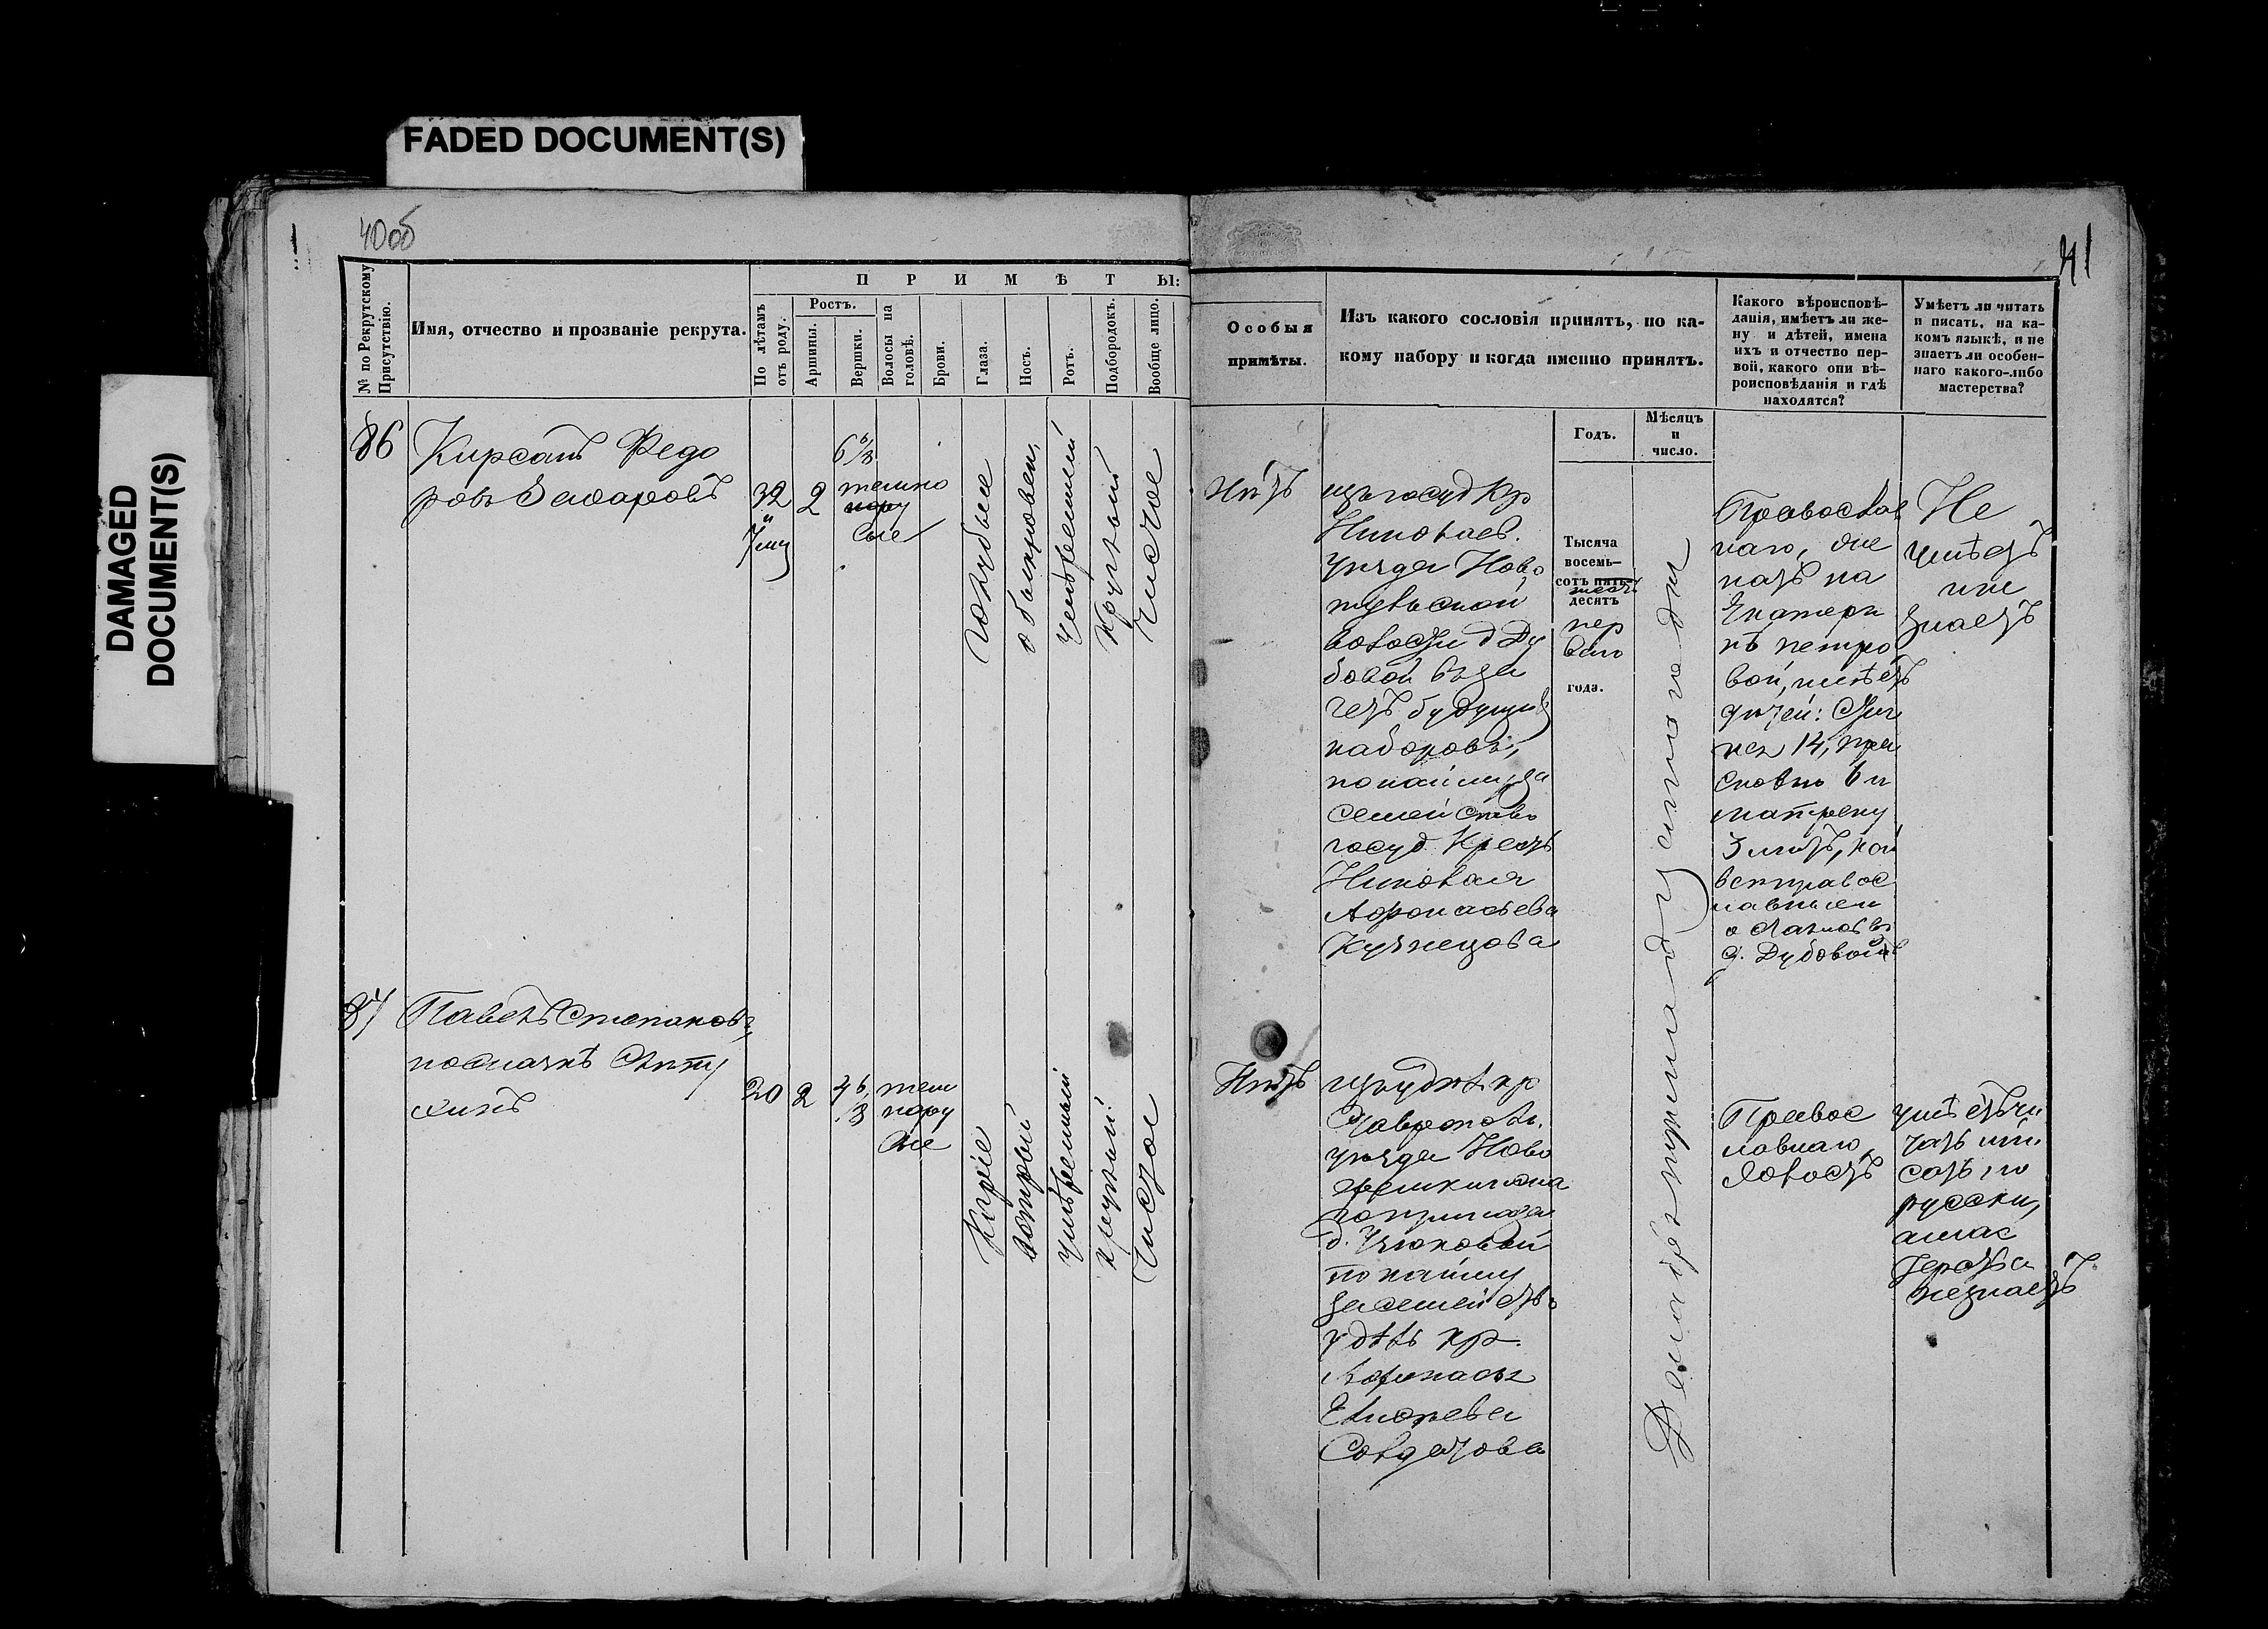 FADED DOCUMENT(S)
DAMAGED
DOCUMENT(S)
40об
41
№ по Рекрутскому
Присутствію.
Имя, отчество и прозваніе рекрута.
П Р И М Ѣ Т Ы:
По лѣтамъ
отъ роду.
Ростъ.
Аршины.
Вершки.
Волосы на
головѣ.
Брови.
Глаза.
Носъ.
Ротъ.
Подбородокъ.
Вообще лицо.
Особыя
примѣты.
Изъ какого сословія принятъ, по ка-
кому набору и когда именно принятъ.
Годъ.
Мѣсяцъ
и
число.
Какого вѣроисповѣ-
данія, имѣетъ ли же-
ну и дѣтей, имена
ихъ и отчество пер-
вой, какого они вѣ-
роисповѣданія и гдѣ
находятся?
Умѣетъ ли читать
и писать, на ка-
комъ языкѣ, и не
знаетъ ли особен-
наго какого-либо
мастерства?
86
Кирсанъ Федо
ровъ Захаровъ
32
и
2
6 6/8
темно
русые
голубые
обыкновен,
умѣренный
круглый
чистое
Нѣтъ
изъ госуд кр
Николаев.
уѣзда Ново
тульской
волости д Ду
бовой въ за
четъ будущихъ
наборовъ,
по найму за
семейство
госуд. Крест
Николая
Афонасьева
Кузнецова
Тысяча
восемь-
сотъ пять-
шесть
десятъ
пер
ваго
года.
Декабря тринадцатого дня
Православ
наго, же
натъ на
Екатери
нѣ Петро
вой, имѣетъ
дѣтей:
14, Пра
сковью 6 и
Матрену
3 лѣтъ, кои
всѣ правос
лавные и
остались въ
д. Дубовой
Не
умѣетъ
и не
знаетъ
87
Павелъ Степановъ,
20
2
4 6/8
тем
нору
сые
Каріе
острый
умѣренный
круглый
чистое
Нѣтъ
изъ удѣл кр
Ставропол.
уѣзда Ново
приказа
по найму
за семейство
удѣль кр.
Афонасья
Солдатова
Правос
лавнаго,
холостъ
умѣетъ чи
тать и пи
сать по
русски,
а мас
терства
незнаетъ